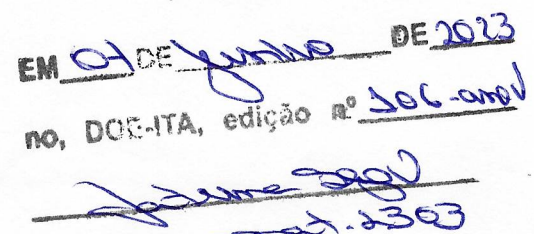 EM 07 DE junho DE 2023
no, DOE-ITA, edição nº 106-ano V
mat. 2303